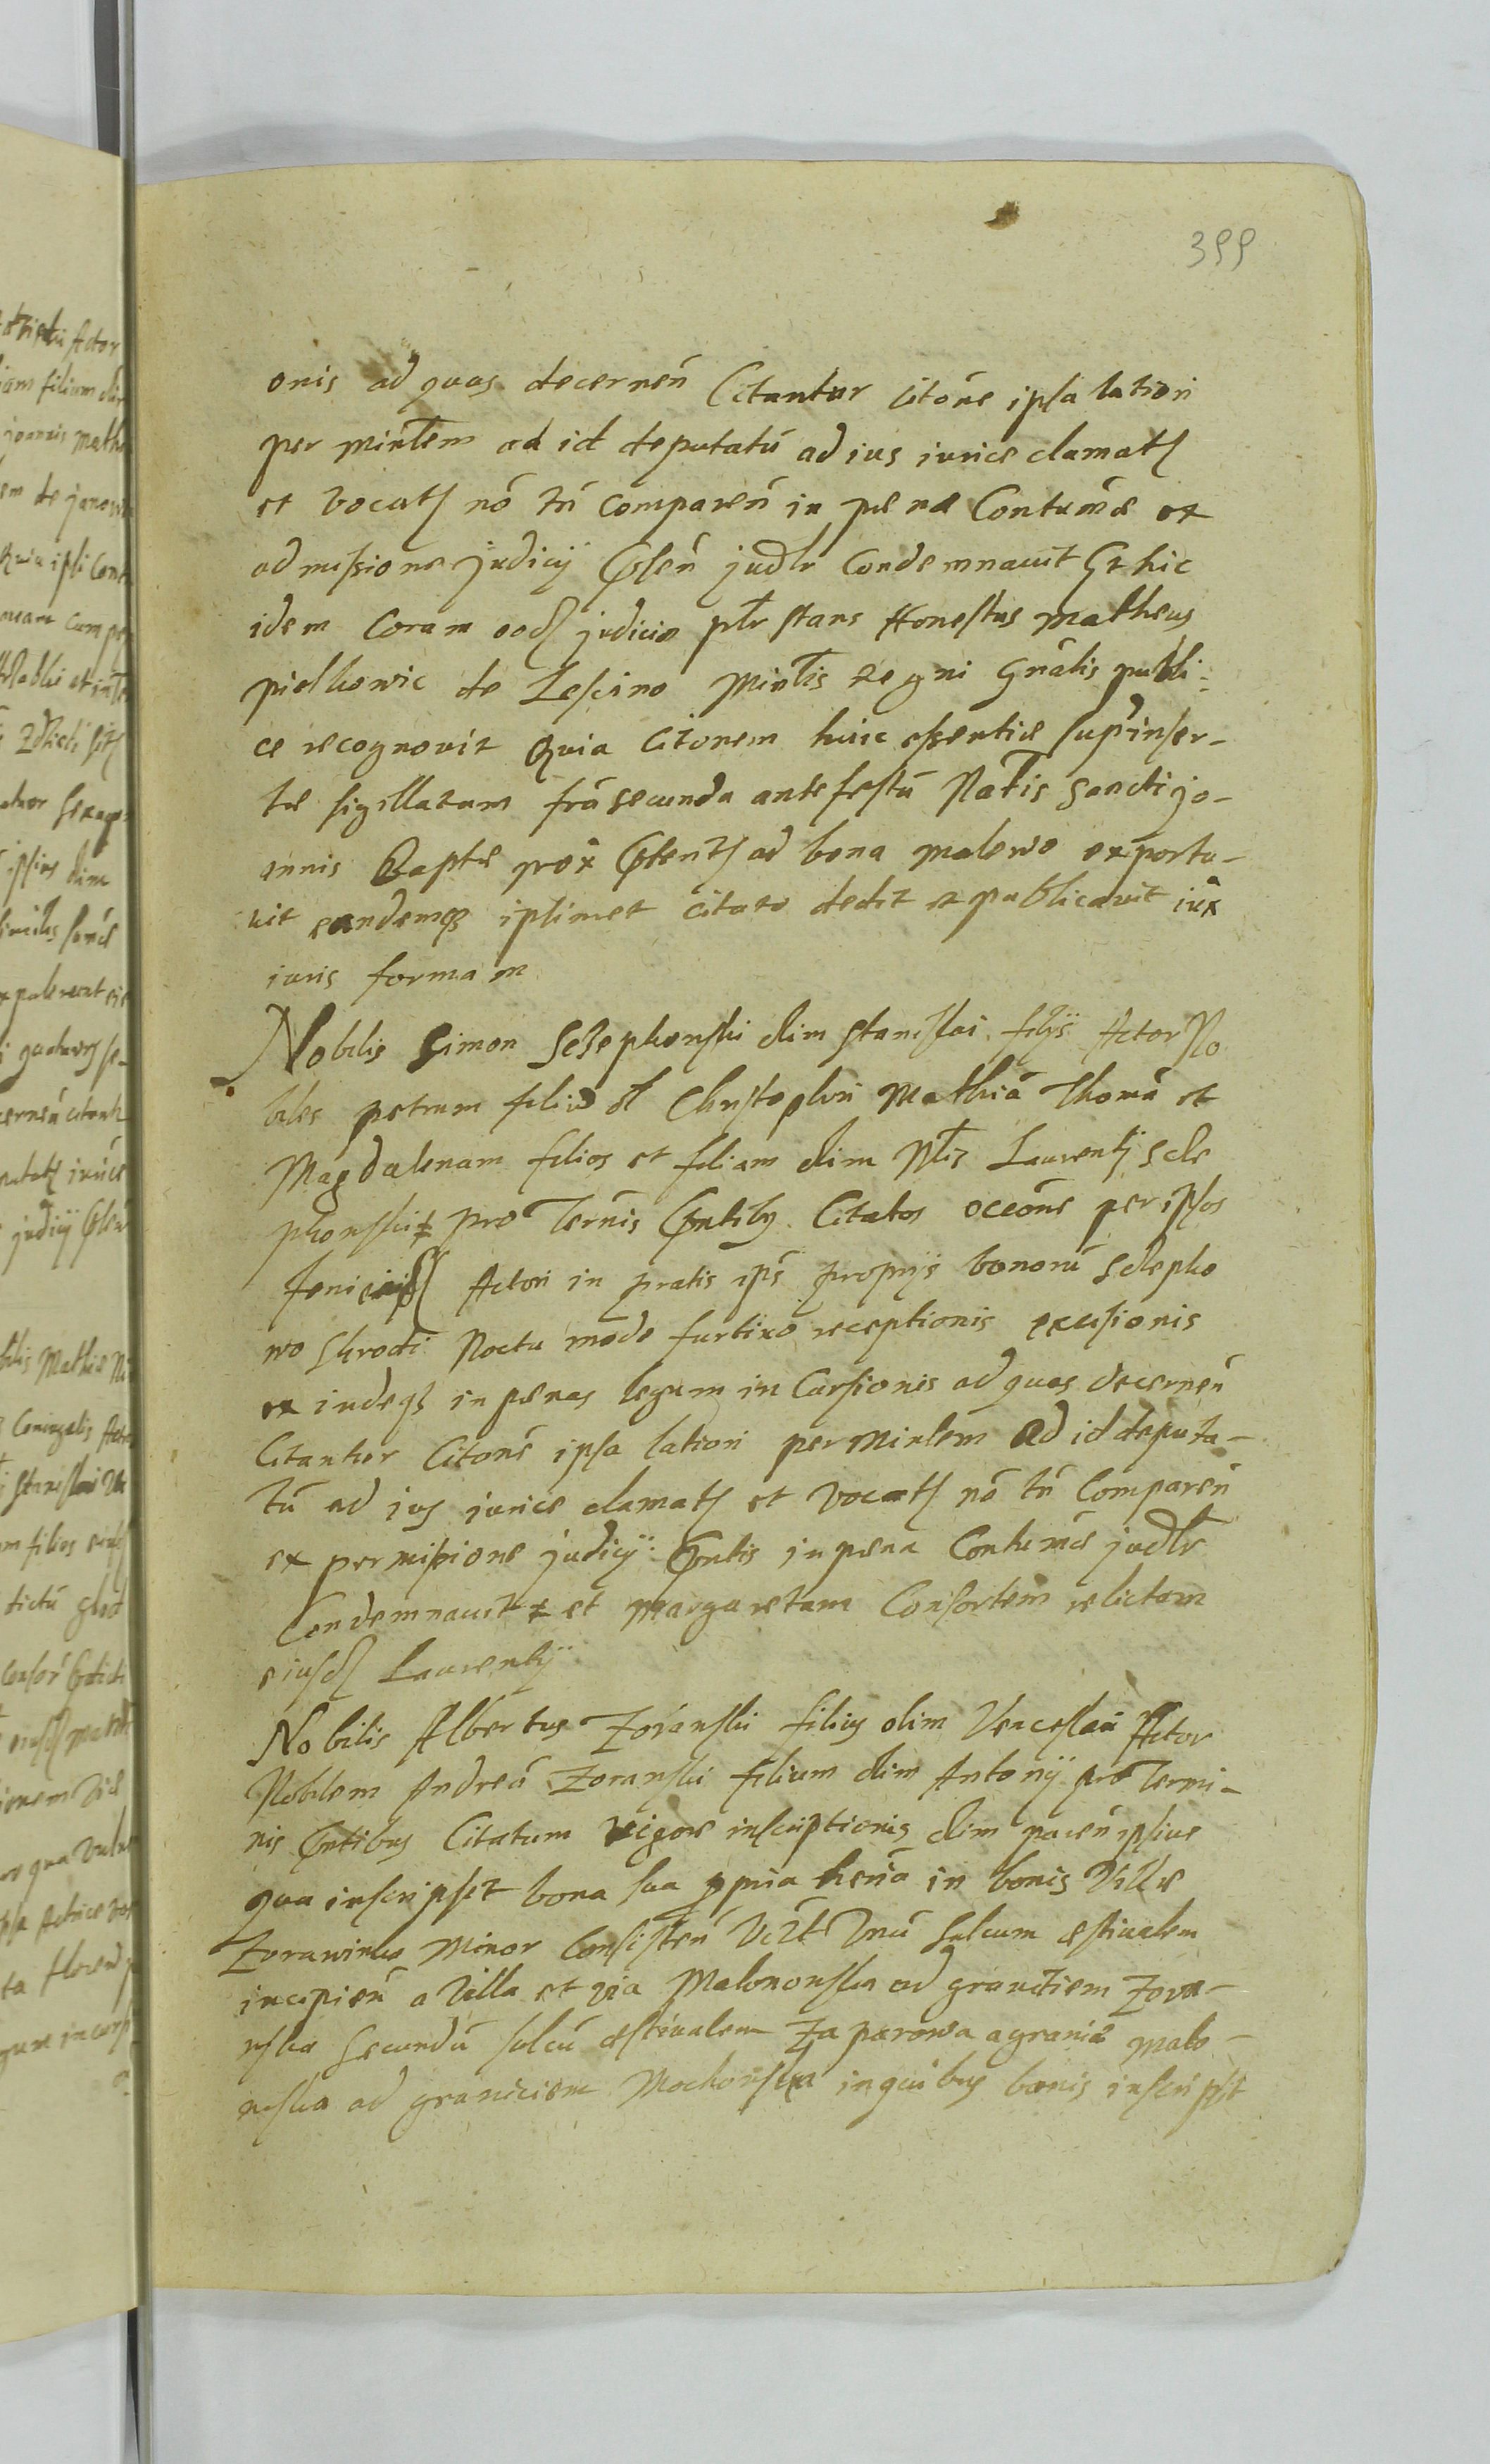 399
onis ad quas decernen̄ Citantur Citōne ipsa latiori
per minlem ad id deputatū ad ius iurice clamatʒ
et vocatʒ nō tn̄ comparen̄ in pena Contumāe ex
admissione judicij pn̄sen̄ judlr condemnavit Et hic
idem Coram eodʒ judicio plr stans Honestus Matheus
de Lescino Minlis Regni Gnālis publi-
ce recognovit Quia Citonem huic essentiæ supinser-
tæ sigillatam frā secunda ante festū Natis Sancti Jo-
annis Baptæ prox ad bona malewo exporta-
vit eandemqʒ ipsimet citato dedit et publicavit iux
iuris formam
Nobilis Simon Sclephonski olim Stanislai filij Actor No
biles petrum filiū Christophori Mathiā Thomā et
Magdalenam filios et filiam olim Nlis Laurentij Scle
phonski ‡ pro Termīs pn̄tibʒ Citatos occōne per ipsos
feni Actori in pratis ips proprijs bonorū Sclepho
wo Skrodi Noctu modo furtivo receptionis excisionis
ex indeqʒ in penas legum in Cursionis ad quas decernen̄
Citantur Citōne ipsa latiori per minlem ad id deputa-
tū ad ius iurice clamatʒ et vocatʒ nō tn̄ Comparen̄
ex permissione judicij pn̄tis in pena Contumāe judlr
Condemnavit ‡ et Margaretam Consortem relictam
eiusdʒ Laurentij
Nobilis Albertus Zoranski filius olim Venceslai Actor
Nobilem Andreā Zoranski filium olim Antonij pro Termi-
nis pn̄tibus Citatum vigore inscriptionis olim paren̄ ipsius
qua inscripset bona sua ppria herīa in bonis Villæ
Zorawinko Minor Consisten̄ Vꝫlt Vnū sulcum æstivalem
incipien̄ a Villa et via Malononska ad granitiem Zora-
nska Secundū sulcū æstivalem Za parowa a granie malo-
nska ad graniciem Mochonska in quibus bonis inscripsit